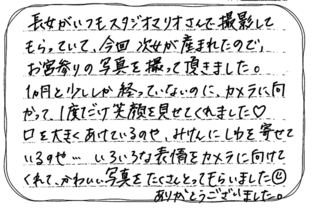 長女がいつもスタジオマリオさんで撮影して
もらっていて、今回次女が産まれたので、
お宮参りの写真を撮って頂きました。
1ヵ月と少ししか経っていないのに、カメラに向
かって、1度だけ笑顔を見せてくれました♡
口を大きくあけているのや、みけんにしわを寄せて
いるのや… いろいろな表情をカメラに向けて
くれて、かわいい写真をたくさんとってもらいました☺
ありがとうございました。